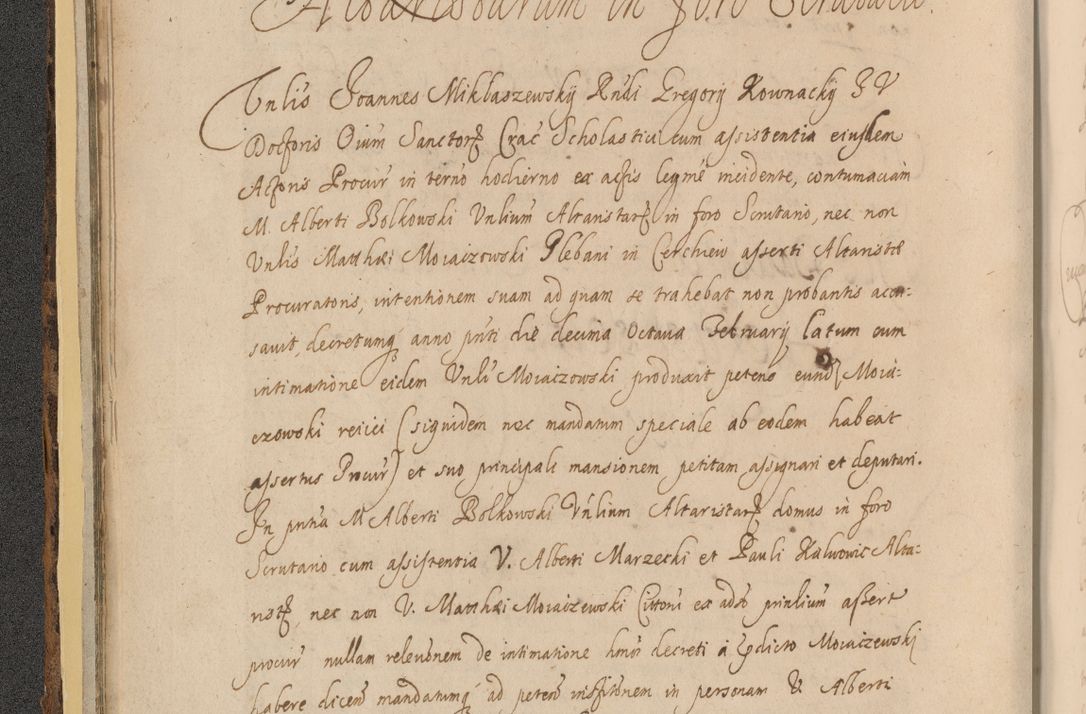 Altaristarum in foro Scrutario.
Vnlis Joannes Mikłaszewskÿ Rndi Gregorÿ Kownackÿ J V
Doctoris Oium Sanctor Crac Scholastici cum assistentia eiusdem
Actoris Procur in terno hodierno ex actis legme incidente, contumaciam
M. Alberti Bolkowski Vnlium Altaristar in foro Scrutario, nec non
Vnlis Matthæi Moiaizowski Plebani in Cerchiew asserti Altaristæ
Procuratoris, intentionem suam ad quam se trahebat non probantis accu-
sauit, decretumq anno pnti die decima Octaua Februarÿ latum cum
intimatione eidem Vnli Moiaizowski produxit petens eund Moia-
czowski reiici (siquidem nec mandatum speciale ab eodem habeat
assertus Procur) et suo principali mansionem petitam assignari et deputari.
In pntia M Alberti Bolkowski Vnlium Altaristar domus in foro
Scrutario cum assistentia V. Alberti Marzecki et Pauli Kulwowic Alta-
ristar, nec non V. Matthæi Moiaizewski Cittoni ex adso prinlium assert
procur nullam releuonem de intimatione hmoi decreti a predicto Moiaizewski
habere dicens mandatumq ad petens insitionem in personam V. Alberti